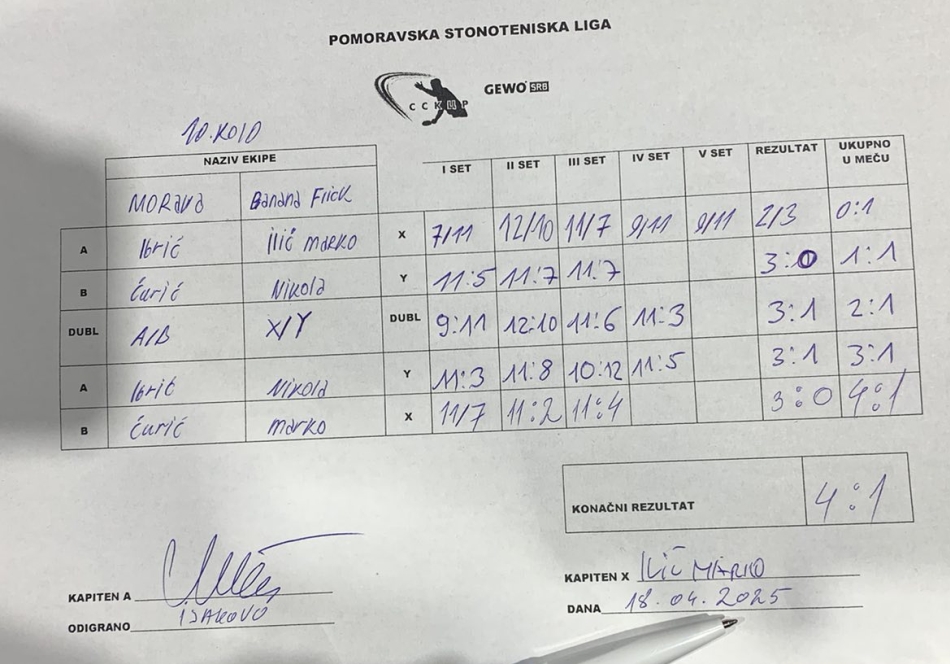 POMORAVSKA STONOTENISKA LIGA
CCKUP GEWO SRB
10. KOLO
NAZIV EKIPE I SET II SET III SET IV SET V SET REZULTAT UKUPNO U MEČU
MORAVA Banana Flick
A Ibrić Ilić Marko X 7/11 12/10 11/7 9/11 9/11 2/3 0:1
B Ćurić Nikola Y 11:5 11:7 11:7 3:0 1:1
DUBL A/B X/Y DUBL 9:11 12:10 11:6 11:3 3:1 2:1
A Ibrić Nikola Y 11:3 11:8 10:12 11:5 3:1 3:1
B Ćurić Marko X 11/7 11:2 11:4 3:0 4:1
KONAČNI REZULTAT 4:1
KAPITEN A
KAPITEN X Ilić MARKO
ODIGRANO ISAKOVO
DANA 18.04.2025